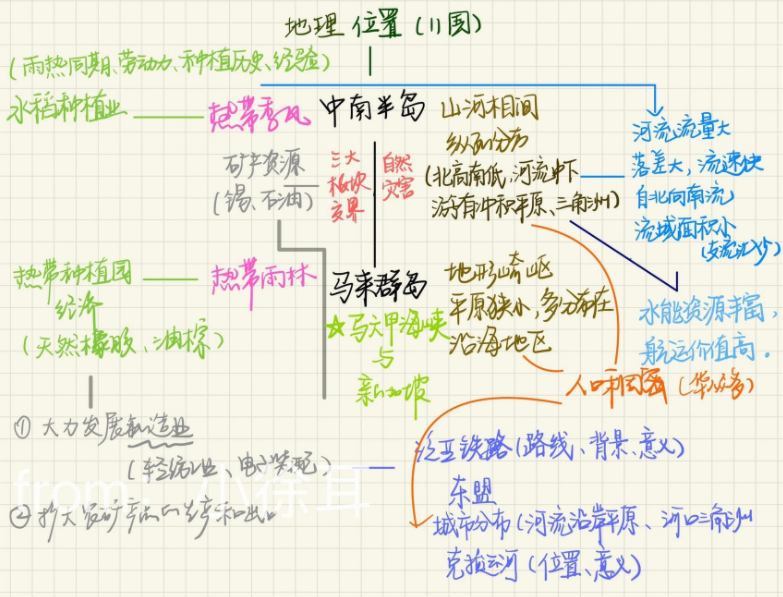 地理位置(11国)
(雨热同期、劳动力、种植历史、经验)
水稻种植业
热带季风
中南半岛
山河相间
纵列分布
(北高南低,河流中下
游有冲积平原、三角洲)
河流流量大
落差大,流速快
自北向南流
流域面积小
(支流汇入少)
矿产资源
(锡、石油)
三大
板块
交界
自然
灾害
热带种植园
经济
(天然橡胶、油棕)
热带雨林
马来群岛
☆马六甲海峡
与
新加坡
地形崎岖
平原狭小,多分布在
沿海地区
水能资源丰富,
航运价值高。
人口和国家(华人多)
① 大力发展制造业
(轻纺工业、电子装配)
② 扩大农矿产品的生产和出口
泛亚铁路(路线、背景、意义)
东盟
城市分布(河流沿岸平原、河口三角洲
克拉运河(位置、意义)
from:小徐耳